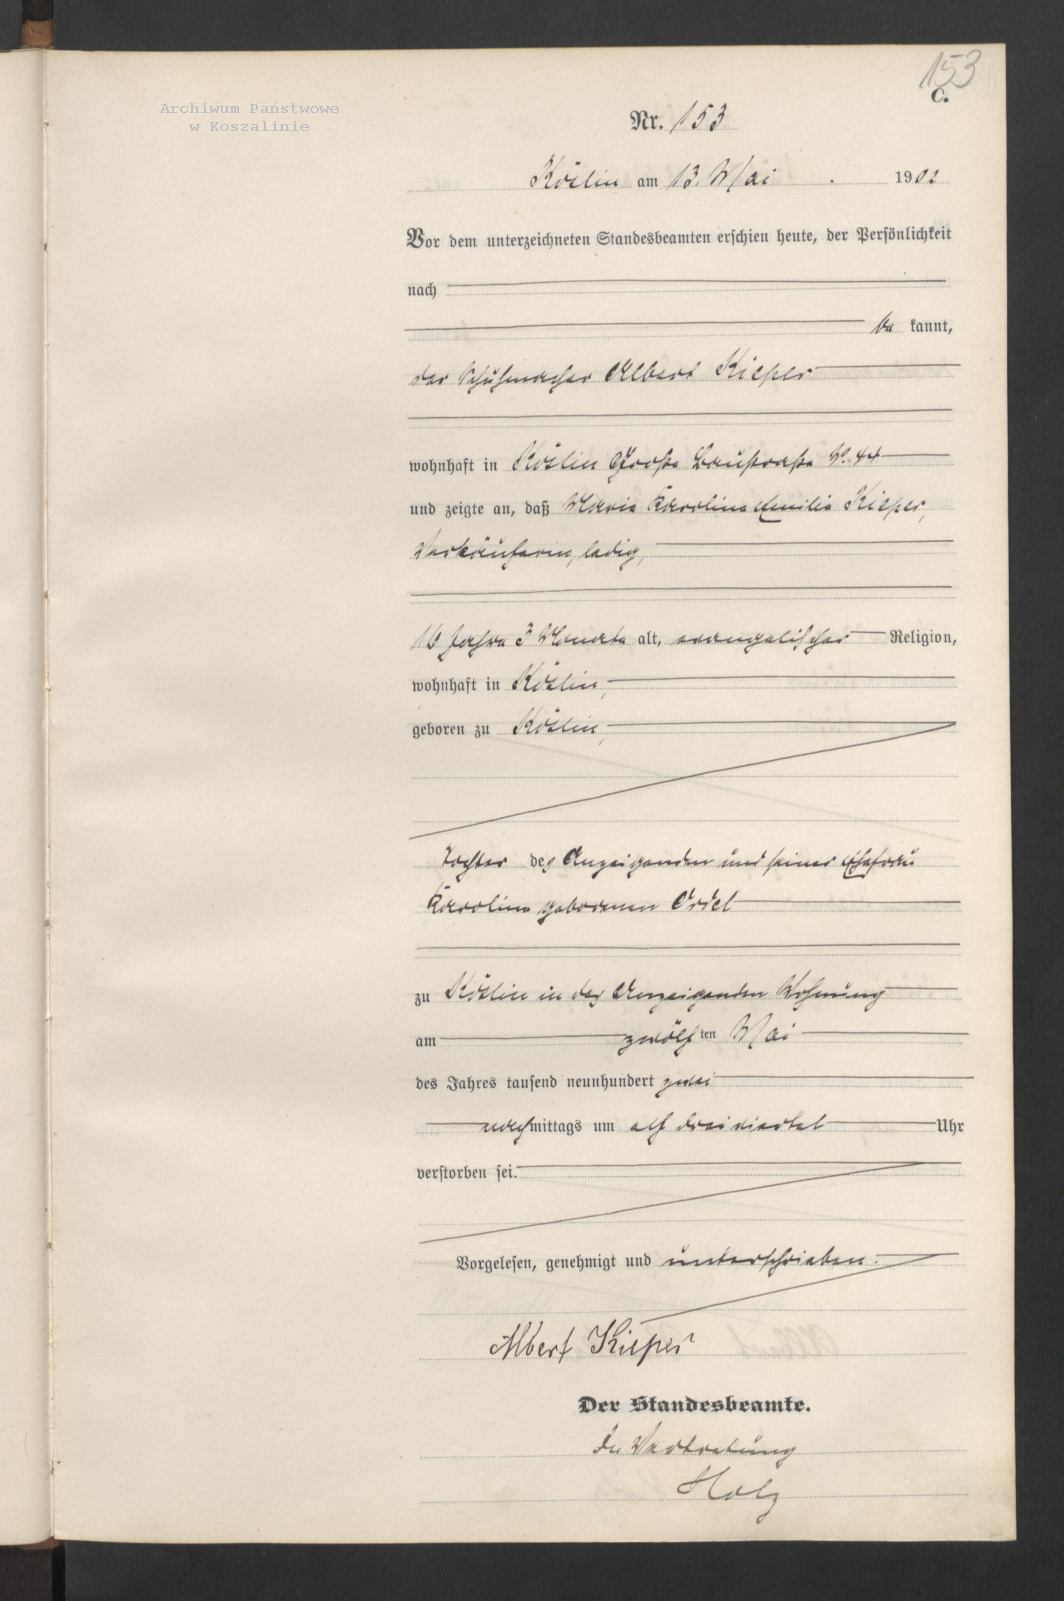 153
C.
Archiwum Państwowe
w Koszalinie
Nr. 153
Köslin am 13. Mai 1902
Vor dem unterzeichneten Standesbeamten erschien heute, der Persönlichkeit
nach
be kannt,
der Schuhmacher Albert Kieper
wohnhaft in Köslin Große Baustraße No. 44
und zeigte an, daß Marie Karoline Emilie Kieper,
Verkäuferin, ledig,
16 Jahre 3 Monate alt, evangelischer Religion,
wohnhaft in Köslin,
geboren zu Köslin,
Tochter des Anzeigenden und seiner Ehefrau
Karoline geborenen
zu Köslin in des Anzeigenden Wohnung
am zwölf ten Mai
des Jahres tausend neunhundert zwei
nachmittags um elf dreiviertel Uhr
verstorben sei.
Vorgelesen, genehmigt und unterschrieben.
Albert Kieper
Der Standesbeamte.
In Vertretung
Holz